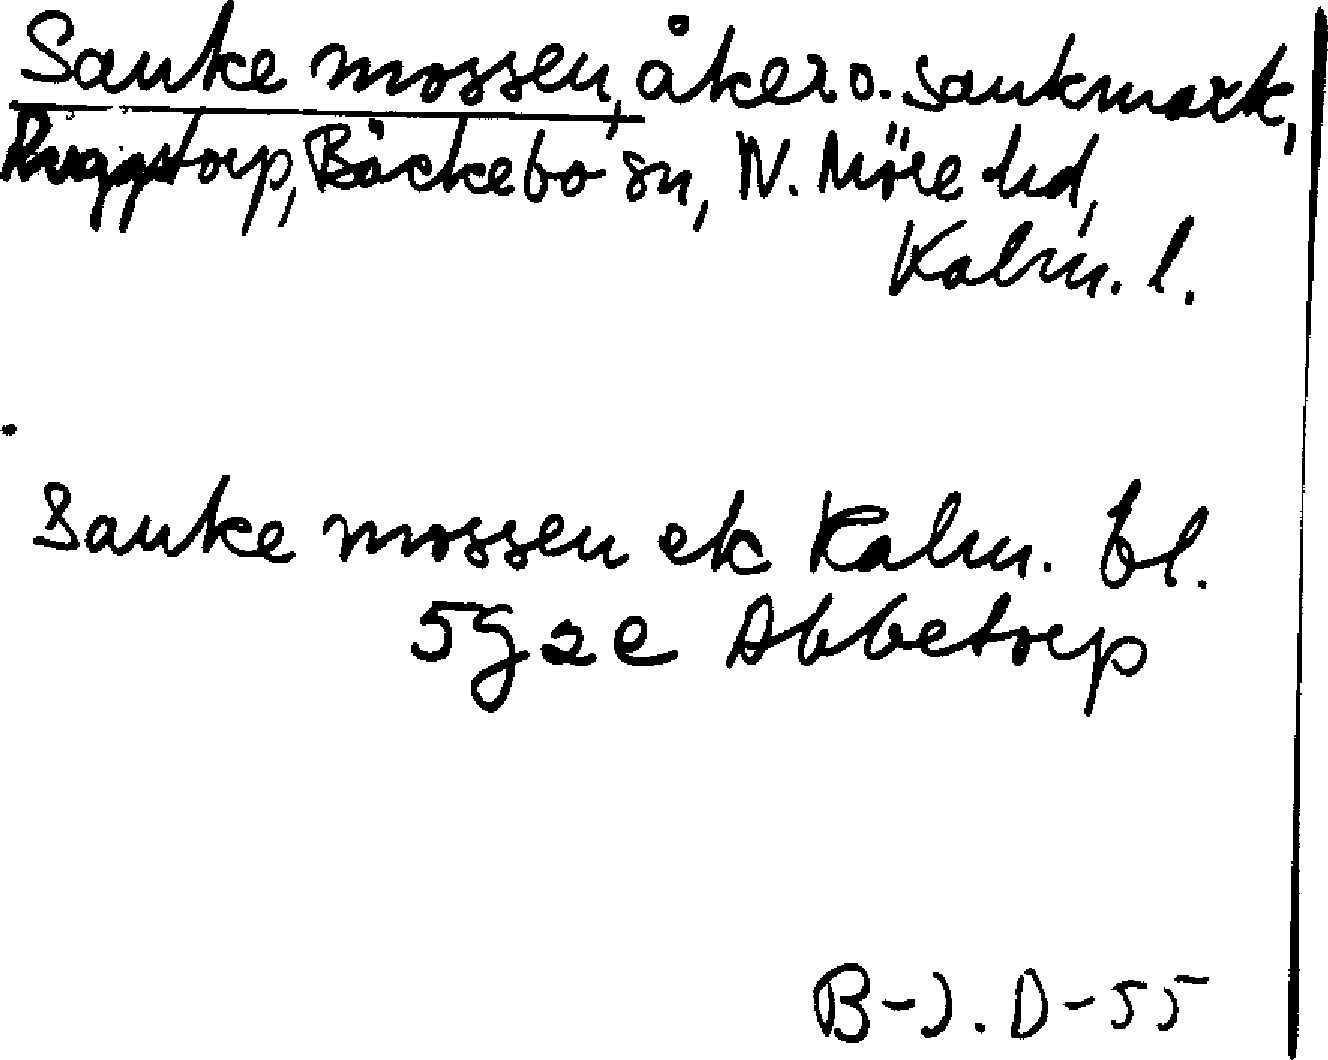 Sanke mossen, åker o. sankmark,
Ruggstorp, Bäckebo sn, N. Möre hd,
Kalm. l.
Sanke mossen ek Kalm. bl.
5g2e Abbetorp
B-J. D-55